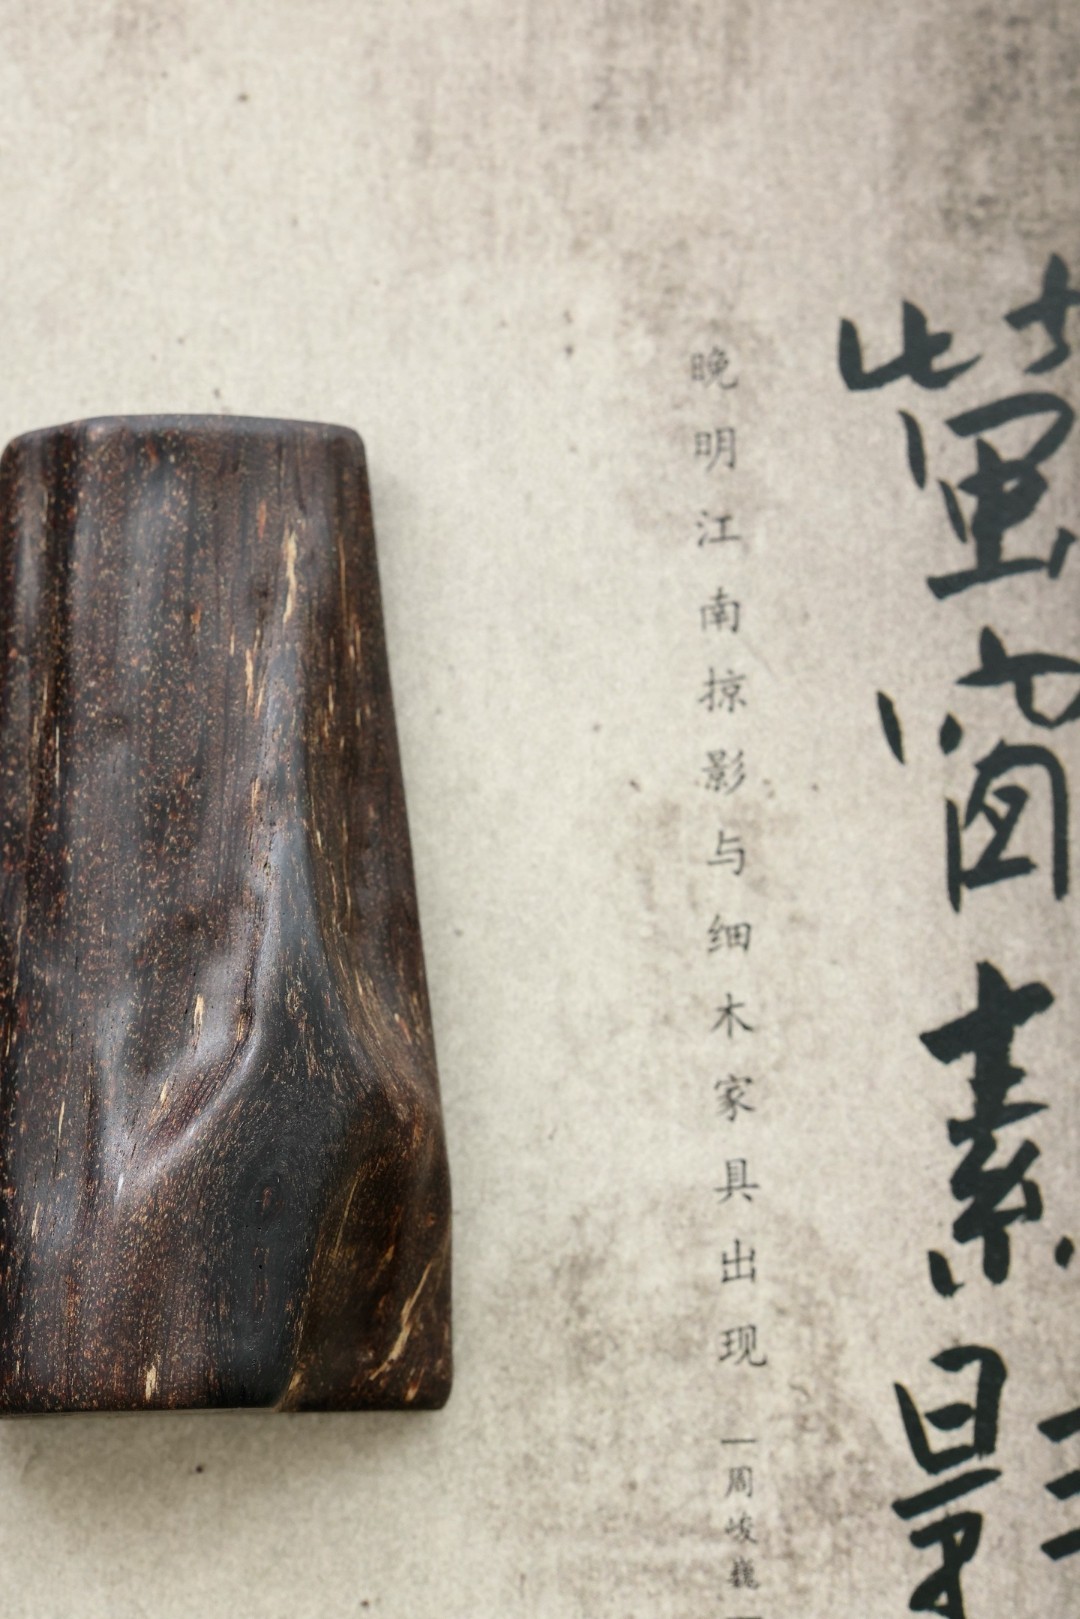 蛮简素影
晚明江南掠影与细木家具出现
—周峻巍—